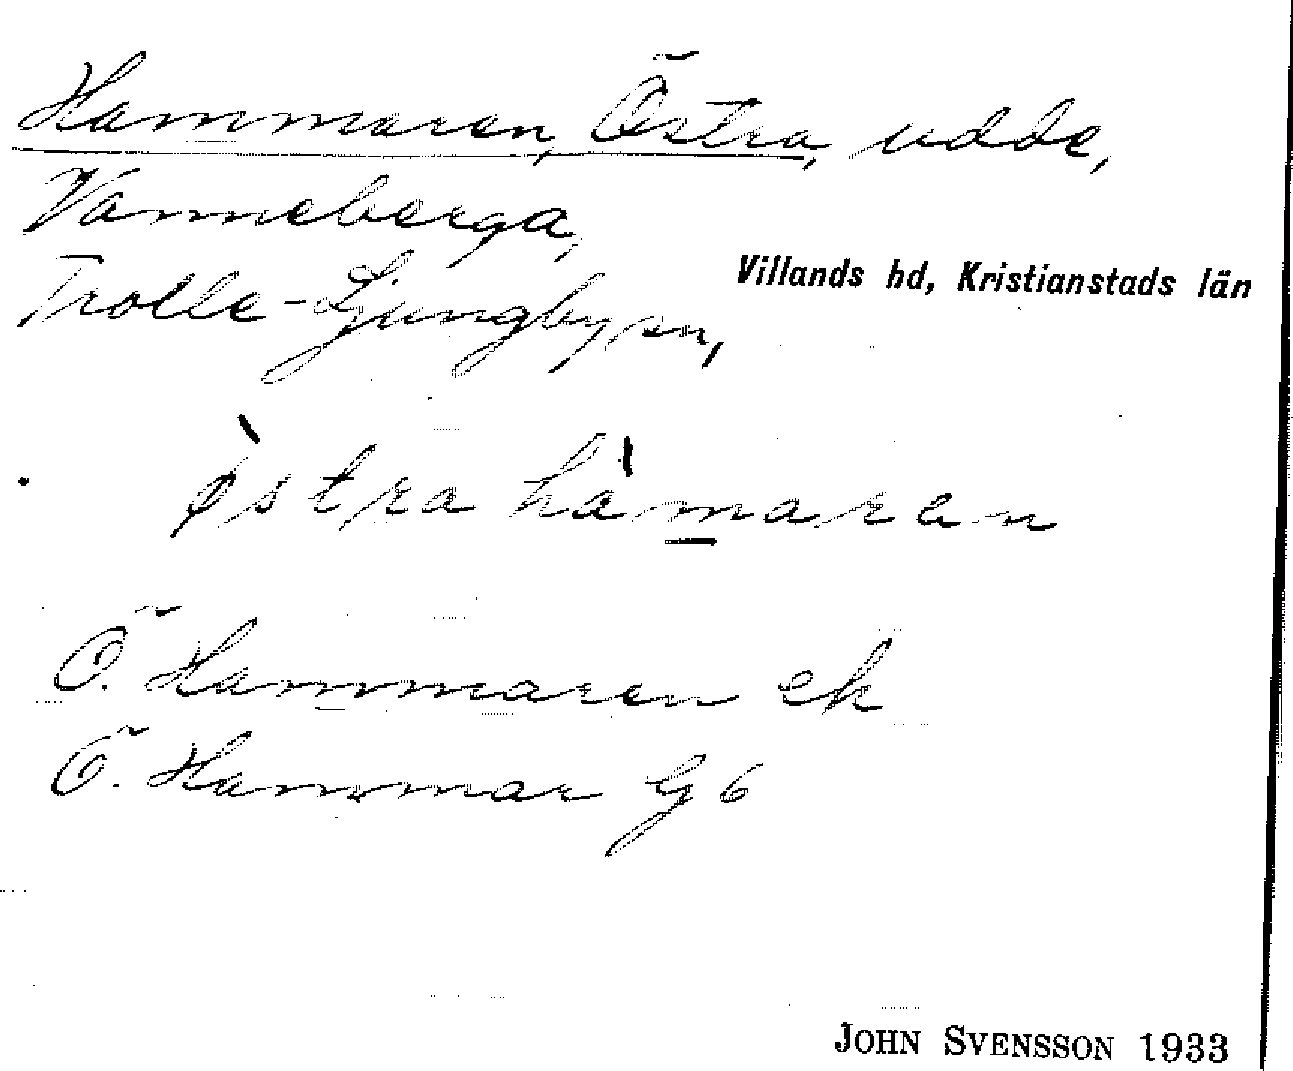 Hammaren, Östra, udde,
Vanneberga,
Trolle-Ljungby sn,
Villands hd, Kristianstads län
ø̀stra hàmaren
Ö. Hammaren ek
Ö. Hammar G6
JOHN SVENSSON 1933